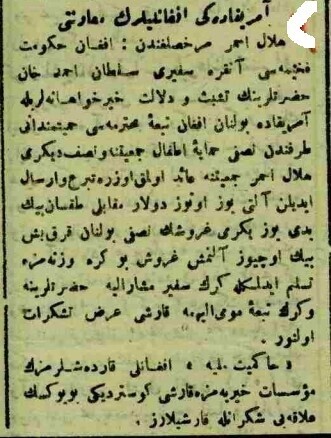 آمریقاده‌کی افغانلیلرك معاونتی
هلال احمر مرخصلغندن : افغان حکومت
فخیمه‌سی آنقره سفیری سلطان احمد خان
حضرتلرینك تشبث و دلالت خیرخواهانه‌لریله
آمریقاده بولنان افغان تبعهٔ محترمه‌سی حمیتمندانی
طرفندن نصفی حمایهٔ اطفال جمعیتنه ونصف دیکری
هلال احمر جمعیتنه عائد اولمق اوزره تبرع وارسال
ایدیلن آلتی یوز اوتوز دولار مقابلی طقسان بیك
یدی یوز یکرمی غروشك نصفی بولنان قرق بش
بیك اوچیوز آلتمش غروش بو کره وزنه‌مزه
تسلیم ایدلمکله کرك سفیر مشارالیه حضرتلرینه
وکرك تبعهٔ مومی‌الیهمه قارشی عرض تشکرات
اولنور .
« حاکمیت ملیه » افغانلی قارده‌شلرمزك
مؤسسات خیریه‌مزه قارشی کوستردیکی بویوکسك
علاقه‌یی شکرانله قارشیلارز .